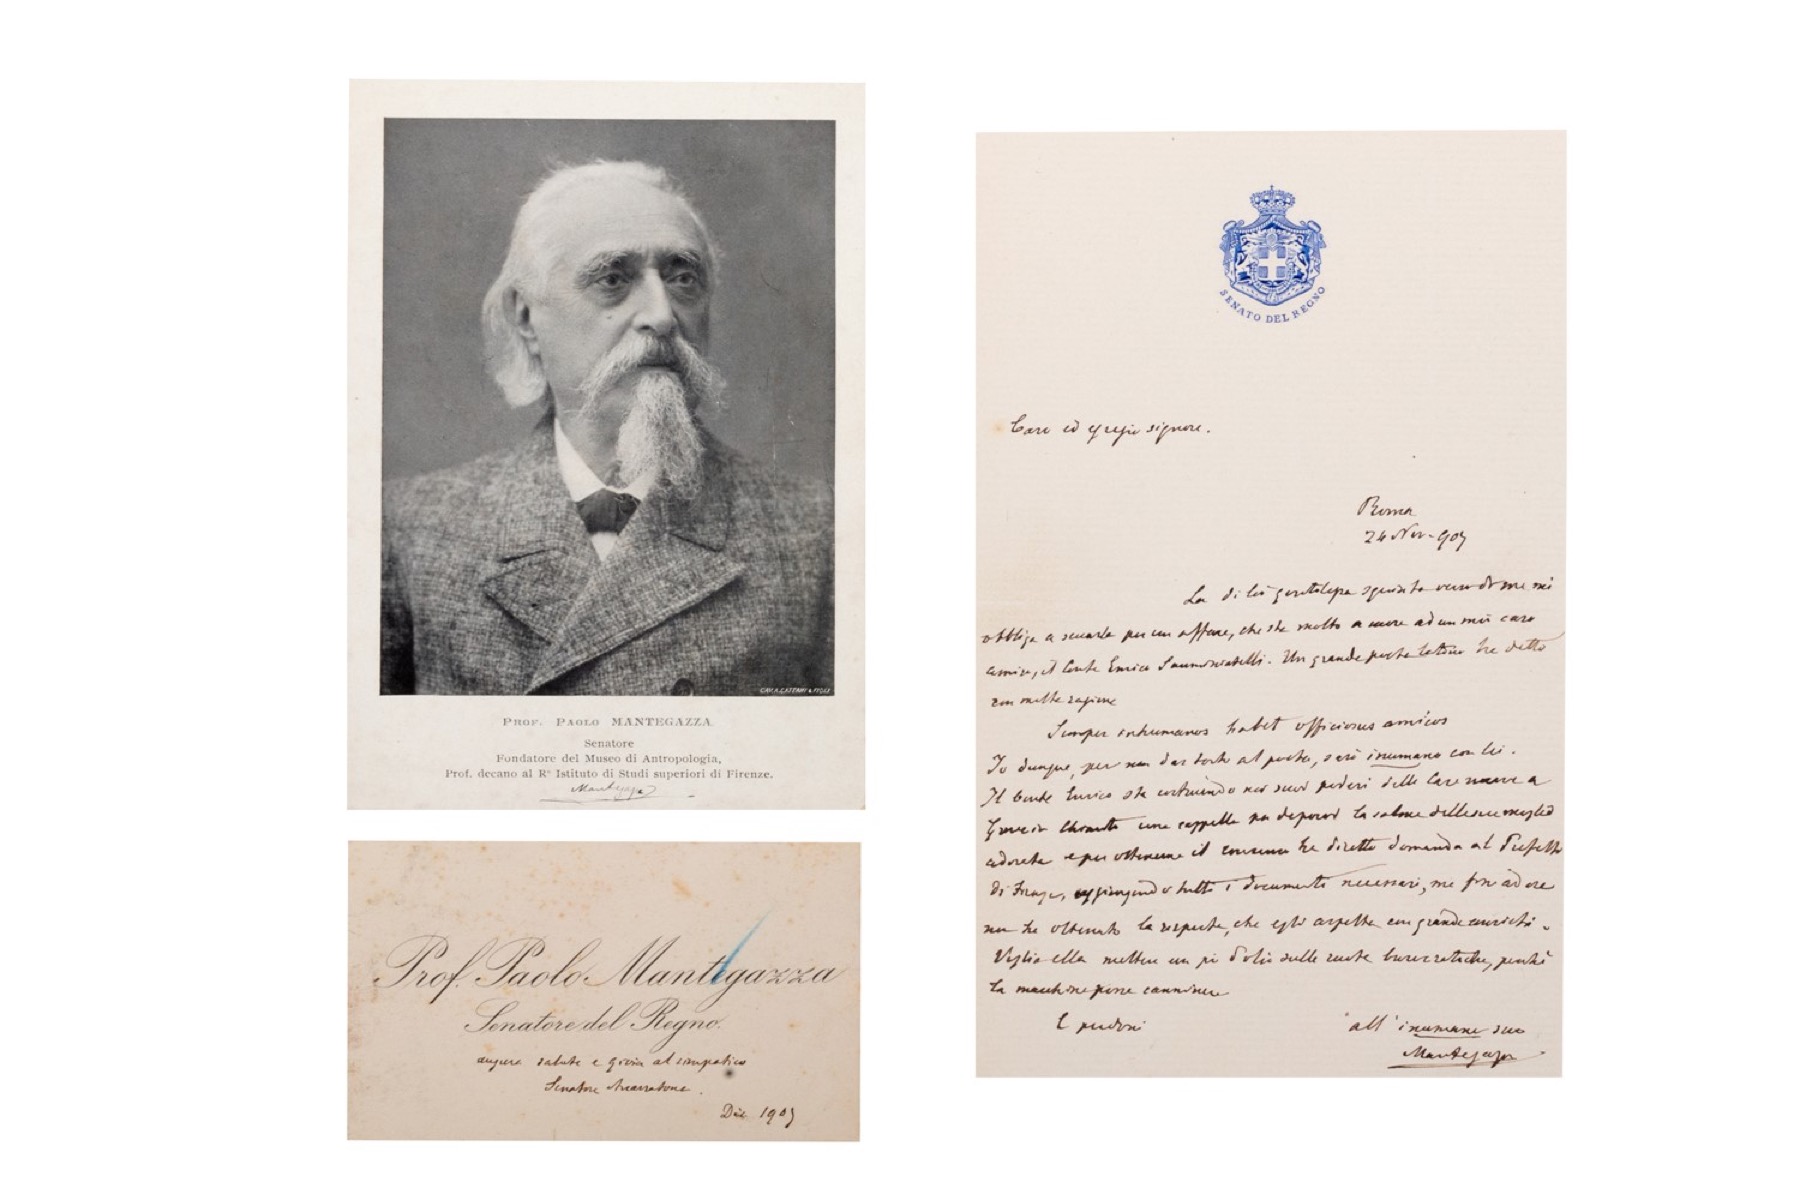 CAV. A. CATTANI & FIGLI
PROF. PAOLO MANTEGAZZA.
Senatore
Fondatore del Museo di Antropologia,
Prof. decano al Rº Istituto di Studi superiori di Firenze.
Mantegazza
Prof. Paolo Mantegazza
Senatore del Regno.
augura salute e gioia al simpatico
Senatore
Dic. 1905
SENATO DEL REGNO
Caro ed egregio signore.
Roma
Nov. 905
La di lei gentilezza squisita verso di me mi
obbliga a seccarla per un affare, che sta molto a cuore ad un mio caro
amico, il Conte Enrico. Un grande poeta latino ha detto
con molta ragione
Semper inhumanos habet officiosus amicos
Io dunque, per non dar torto al poeta, sarò inumano con lei.
Il Conte Enrico sta costruendo nei suoi poderi delle Case nuove a
Greve in Chianti una cappella per deporvi la salma della sua moglie
adorata e per ottenerne il consenso ha diretto domanda al Prefetto
di Firenze, aggiungendo tutti i documenti necessari, ma fin ad ora
non ha ottenuto la risposta, che egli aspetta con grande
Voglia ella mettere un po' d'olio sulle ruote burocratiche, perchè
la macchina possa camminare
E perdoni
all' inumano suo
Mantegazza